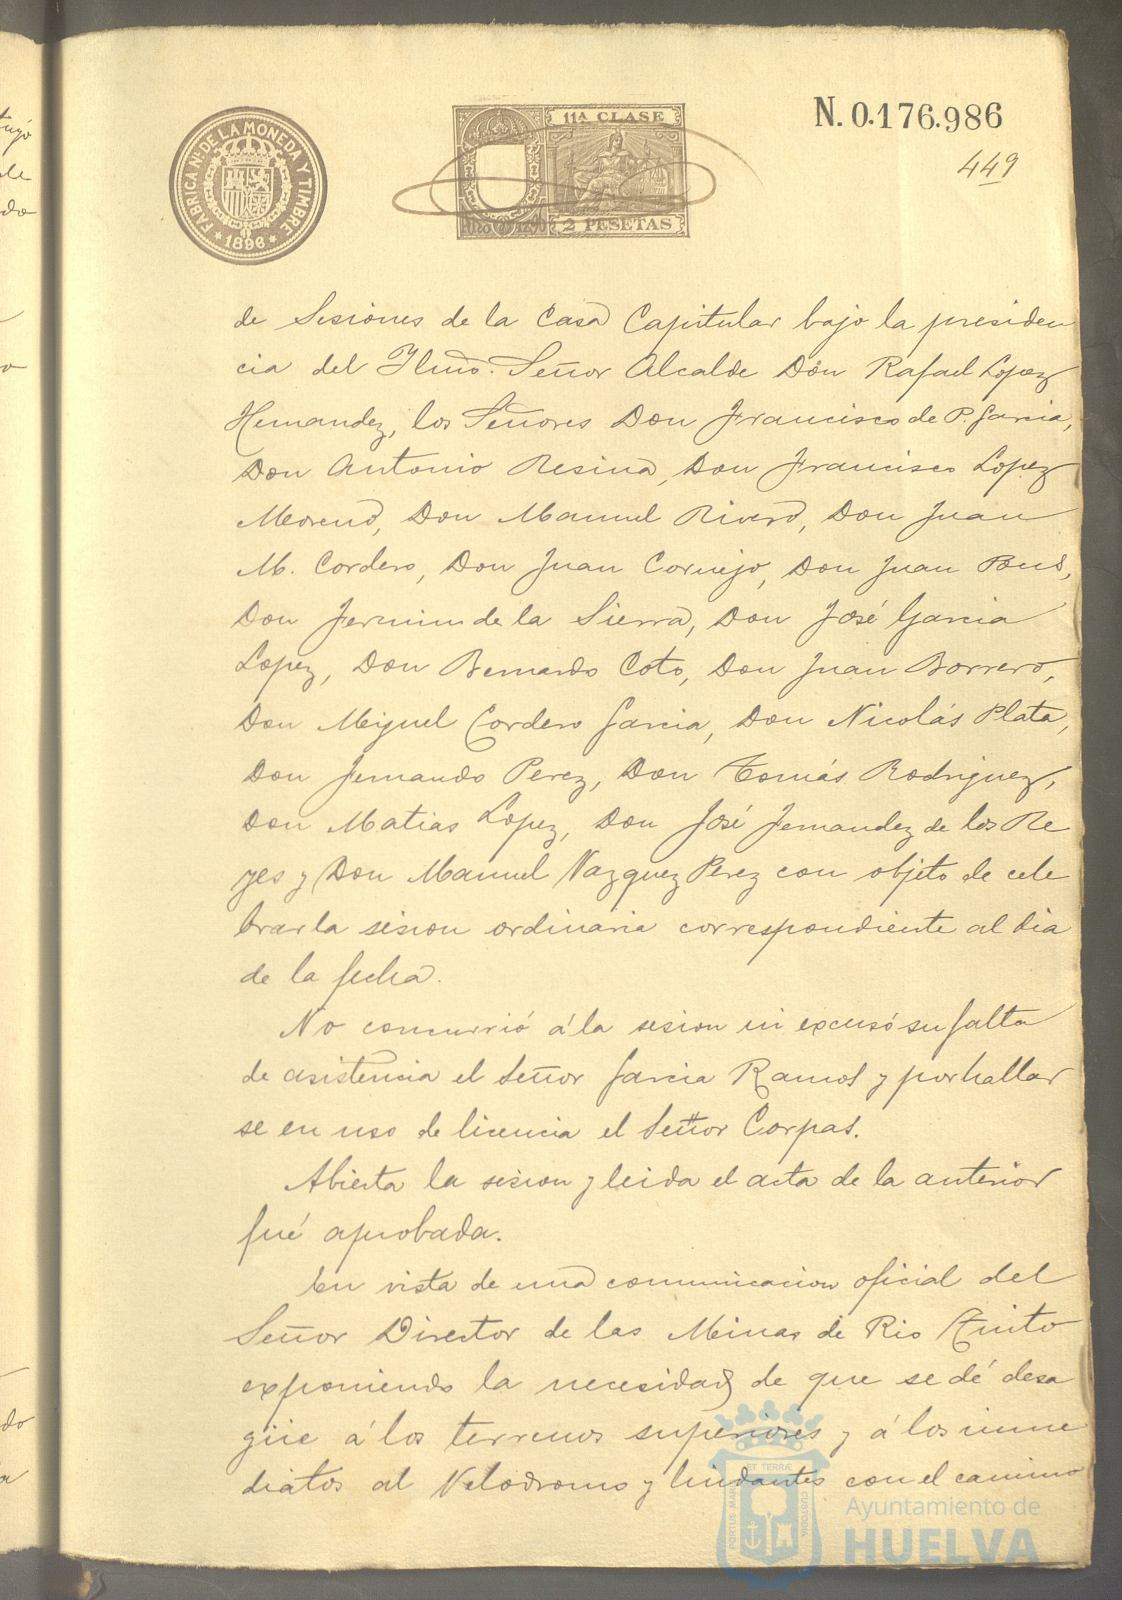 FABRICA NAL. DE LA MONEDA Y TIMBRE
* 1896 *
11A CLASE
2 PESETAS
N. 0.176.986
449
de Sesiones de la Casa Capitular bajo la presiden
cia del Ilmo. Señor Alcalde Don Rafael Lopez
Hernandez, los Señores Don Francisco de P. Garcia,
Don Antonio Resina, Don Francisco Lopez
Moreno, Don Manuel Rivero, Don Juan
M. Cordero, Don Juan Cornejo, Don Juan Pons,
Don Fermin de la Sierra, Don José Garcia
Lopez, Don Bernardo Coto, Don Juan Borrero,
Don Miguel Cordero Garcia, Don Nicolás Plata,
Don Fernando Perez, Don Tomás Rodriguez,
Don Matias Lopez, Don José Fernandez de los Re
yes y Don Manuel Vazquez Perez con objeto de cele
brar la sesion ordinaria correspondiente al dia
de la fecha.
No concurrió á la sesion ni excusó su falta
de asistencia el Señor Garcia Ramos y por hallar
se en uso de licencia el Señor Corpas.
Abierta la sesion y leida el acta de la anterior
fué aprobada.
En vista de una comunicacion oficial del
Señor Director de las Minas de Rio Tinto
exponiendo la necesidad de que se dé desa
güe á los terrenos superiores y á los inme
diatos al Velodromo y lindantes con el camino
PORTUS MARIS ET TERRÆ CUSTODIA
Ayuntamiento de
HUELVA